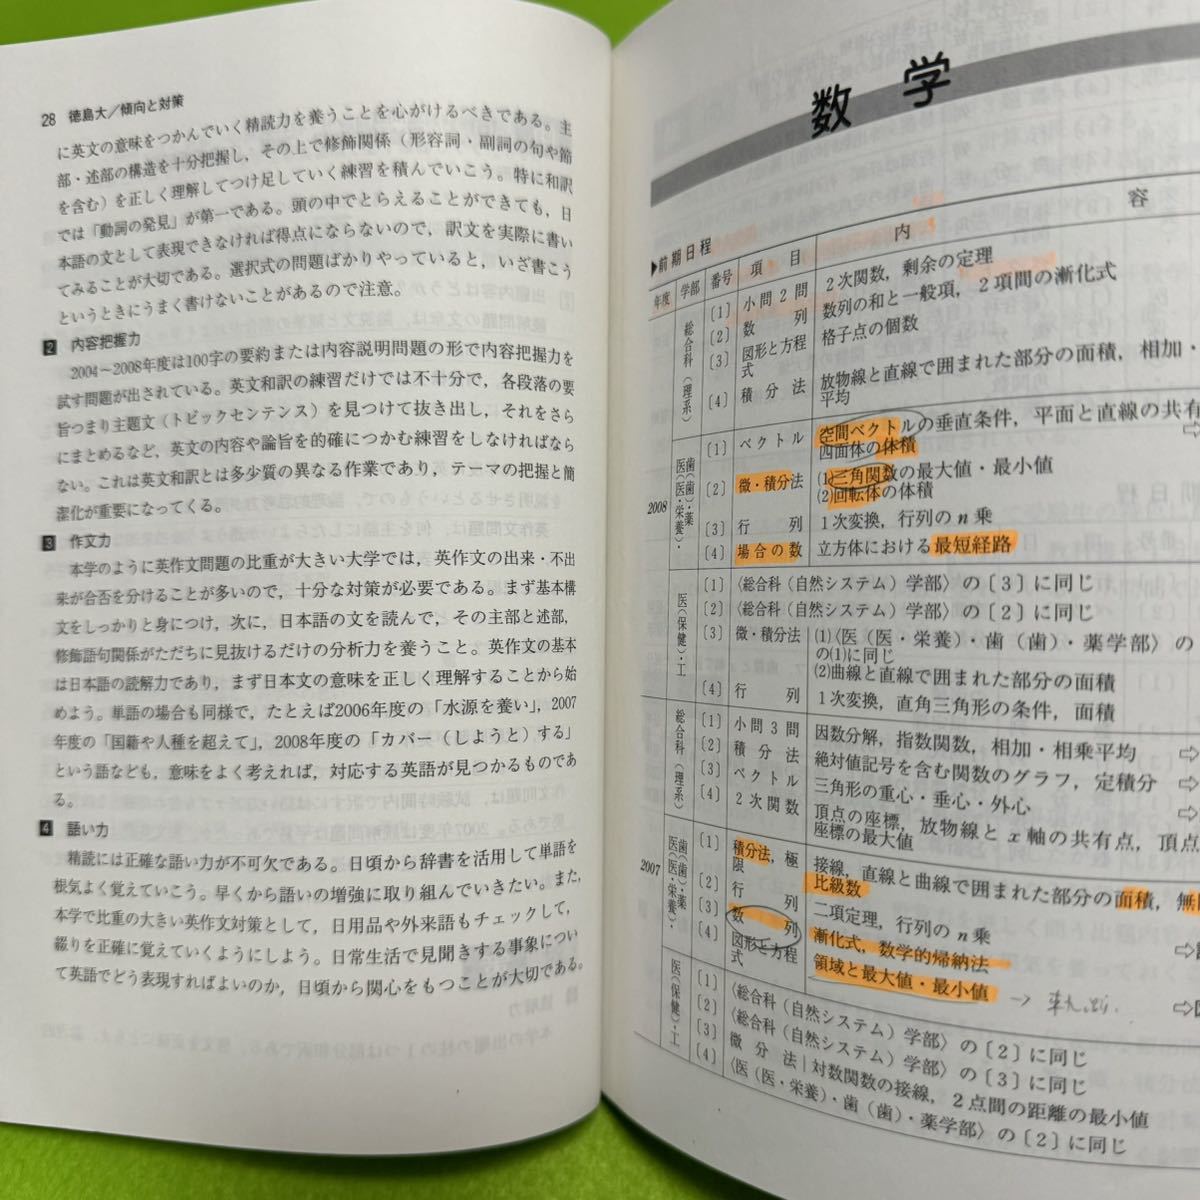 28 徳島大／傾向と対策
に英文の意味をつかんでいく精読力を養うことを心がけるべきである。主
部・述部の構造を十分把握し，その上で修飾関係（形容詞・副詞の句や節
を含む）を正しく理解してつけ足していく練習を積んでいこう。特に和訳
では「動詞の発見」が第一である。頭の中でとらえることができても，日
本語の文として表現できなければ得点にならないので，訳文を実際に書い
てみることが大切である。選択式の問題ばかりやっていると，いざ書こう
というときにうまく書けないことがあるので注意。
2 内容把握力
2004～2008年度は100字の要約または内容説明問題の形で内容把握力を
試す問題が出されている。英文和訳の練習だけでは不十分で，各段落の要
旨つまり主題文（トピックセンテンス）を見つけて抜き出し，それをさら
にまとめるなど，英文の内容や論旨を的確につかむ練習をしなければなら
ない。これは英文和訳とは多少質の異なる作業であり，テーマの把握と簡
潔化が重要になってくる。
3 作文力
本学のように英作文問題の比重が大きい大学では，英作文の出来・不出
来が合否を分けることが多いので，十分な対策が必要である。まず基本構
文をしっかりと身につけ，次に，日本語の文を読んで，その主部と述部，
修飾語句関係がただちに見抜けるだけの分析力を養うこと。英作文の基本
は日本語の読解力であり，まず日本文の意味を正しく理解することから始
めよう。単語の場合も同様で，たとえば2006年度の「水源を養い」，2007
年度の「国籍や人種を超えて」，2008年度の「カバー（しようと）する」
という語なども，意味をよく考えれば，対応する英語が見つかるものであ
る。
4 語い力
精読には正確な語い力が不可欠である。日頃から辞書を活用して単語を
根気よく覚えていこう。早くから語いの増強に取り組んでいきたい。また，
本学で比重の大きい英作文対策として，日用品や外来語もチェックして，
綴りを正確に覚えていくようにしよう。日常生活で見聞きする事象につい
て英語でどう表現すればよいのか，日頃から関心をもつことが大切である。
数 学
▶前期日程
年度 学部 番号 項 目 内 容
2008 総合科（理系） 〔1〕 小問2問 2次関数，剰余の定理
〔2〕 数 列 数列の和と一般項，2項間の漸化式
〔3〕 図形と方程式 格子点の個数
〔4〕 積分法 放物線と直線で囲まれた部分の面積，相加・
平均
医（医・栄養）・歯（歯）・薬 〔1〕 ベクトル 空間ベクトルの垂直条件，平面と直線の共有
四面体の体積 ⇨
〔2〕 微・積分法 (1)三角関数の最大値・最小値
(2)回転体の体積
〔3〕 行 列 1次変換，行列のn乗
〔4〕 場合の数 立方体における最短経路
医（保健）・工 〔1〕 〈総合科（自然システム）学部〉の〔3〕に同じ
〔2〕 〈総合科（自然システム）学部〉の〔2〕に同じ
〔3〕 微・積分法 (1)〈医（医・栄養）・歯（歯）・薬学部〉の〔
の(1)に同じ
(2)曲線と直線で囲まれた部分の面積
〔4〕 行 列 1次変換，直角三角形の条件，面積
2007 総合科（理系） 〔1〕 小問3問 因数分解，指数関数，相加・相乗平均 ⇨
〔2〕 積分法 絶対値記号を含む関数のグラフ，定積分 ⇨
〔3〕 ベクトル 三角形の重心・垂心・外心 ⇨
〔4〕 2次関数 頂点の座標，放物線とx軸の共有点，頂点
座標の最大値
医（医・栄養）・歯（歯）・薬 〔1〕 積分法，極限 接線，直線と曲線で囲まれた部分の面積，無
比級数
〔2〕 行 列 二項定理，行列のn乗
〔3〕 数 列 漸化式，数学的帰納法 ⇨
〔4〕 図形と方程式 領域と最大値・最小値 → ⇨
医（保健）・工 〔1〕 〈総合科（自然システム）学部〉の〔2〕に同じ
〔2〕 〈総合科（自然システム）学部〉の〔3〕に同じ
〔3〕 微分法 対数関数の接線，2点間の距離の最小値
〔4〕 〈医（医・栄養）・歯（歯）・薬学部〉の〔2〕に同じ